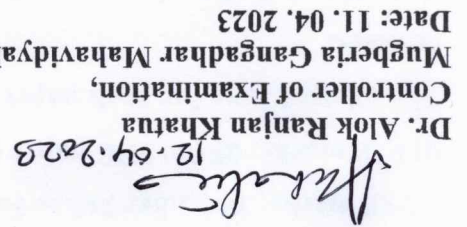 12.04.2023
Dr. Alok Ranjan Khatua
Controller of Examination,
Mugberia Gangadhar Mahavidya
Date: 11. 04. 2023